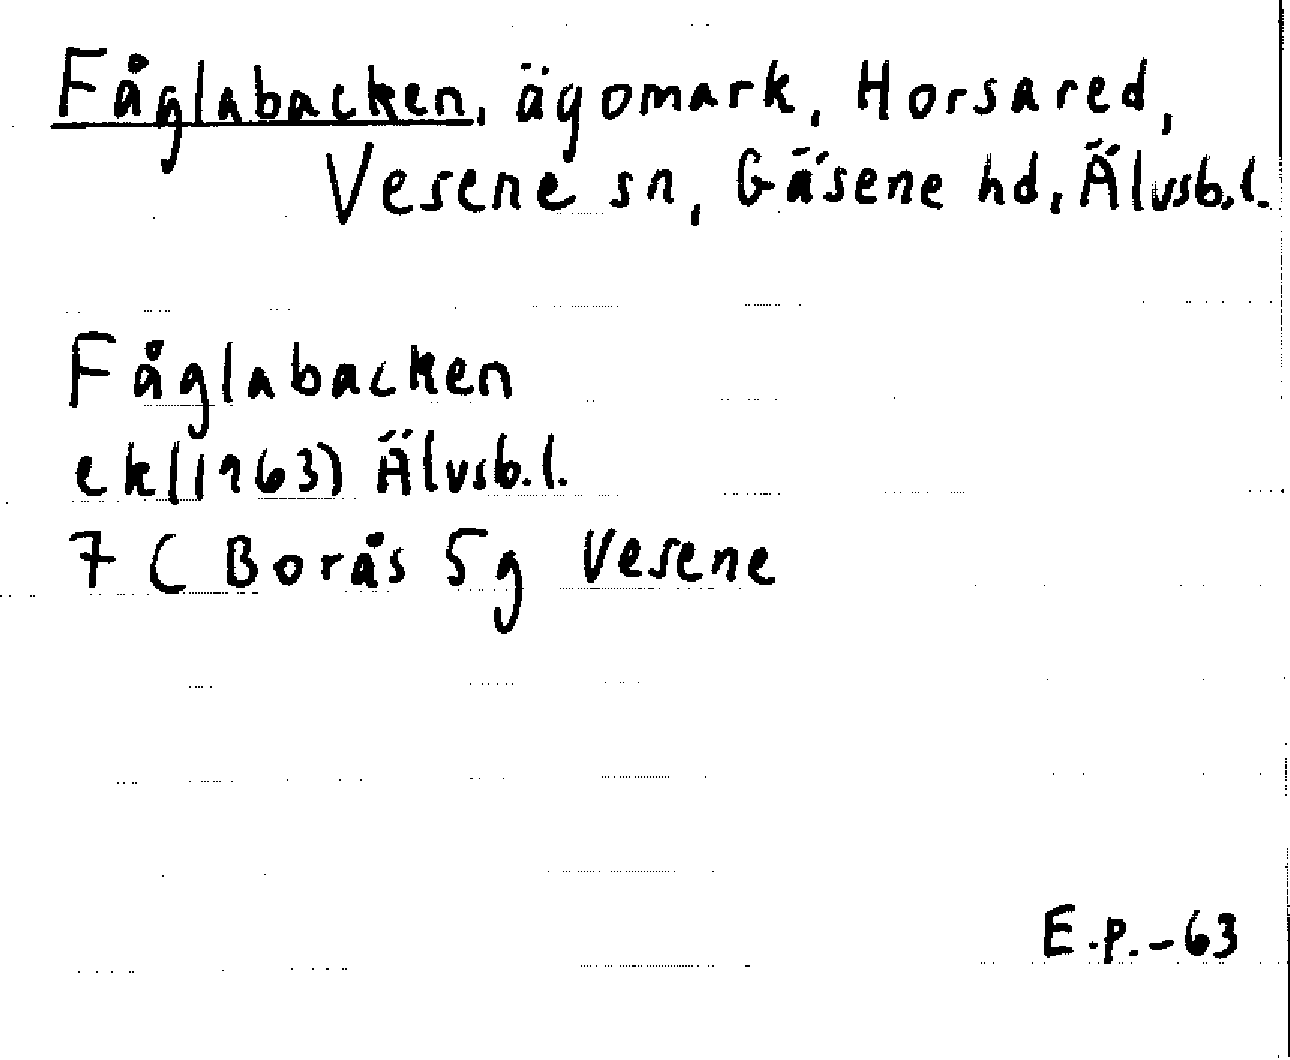 Fåglabacken, ägomark, Horsared,
Vesene sn, Gäsene hd, Älvsb.l.
Fåglabacken
ek(1963) Älvsb.l.
7C Borås 5g Vesene
E.p.-63